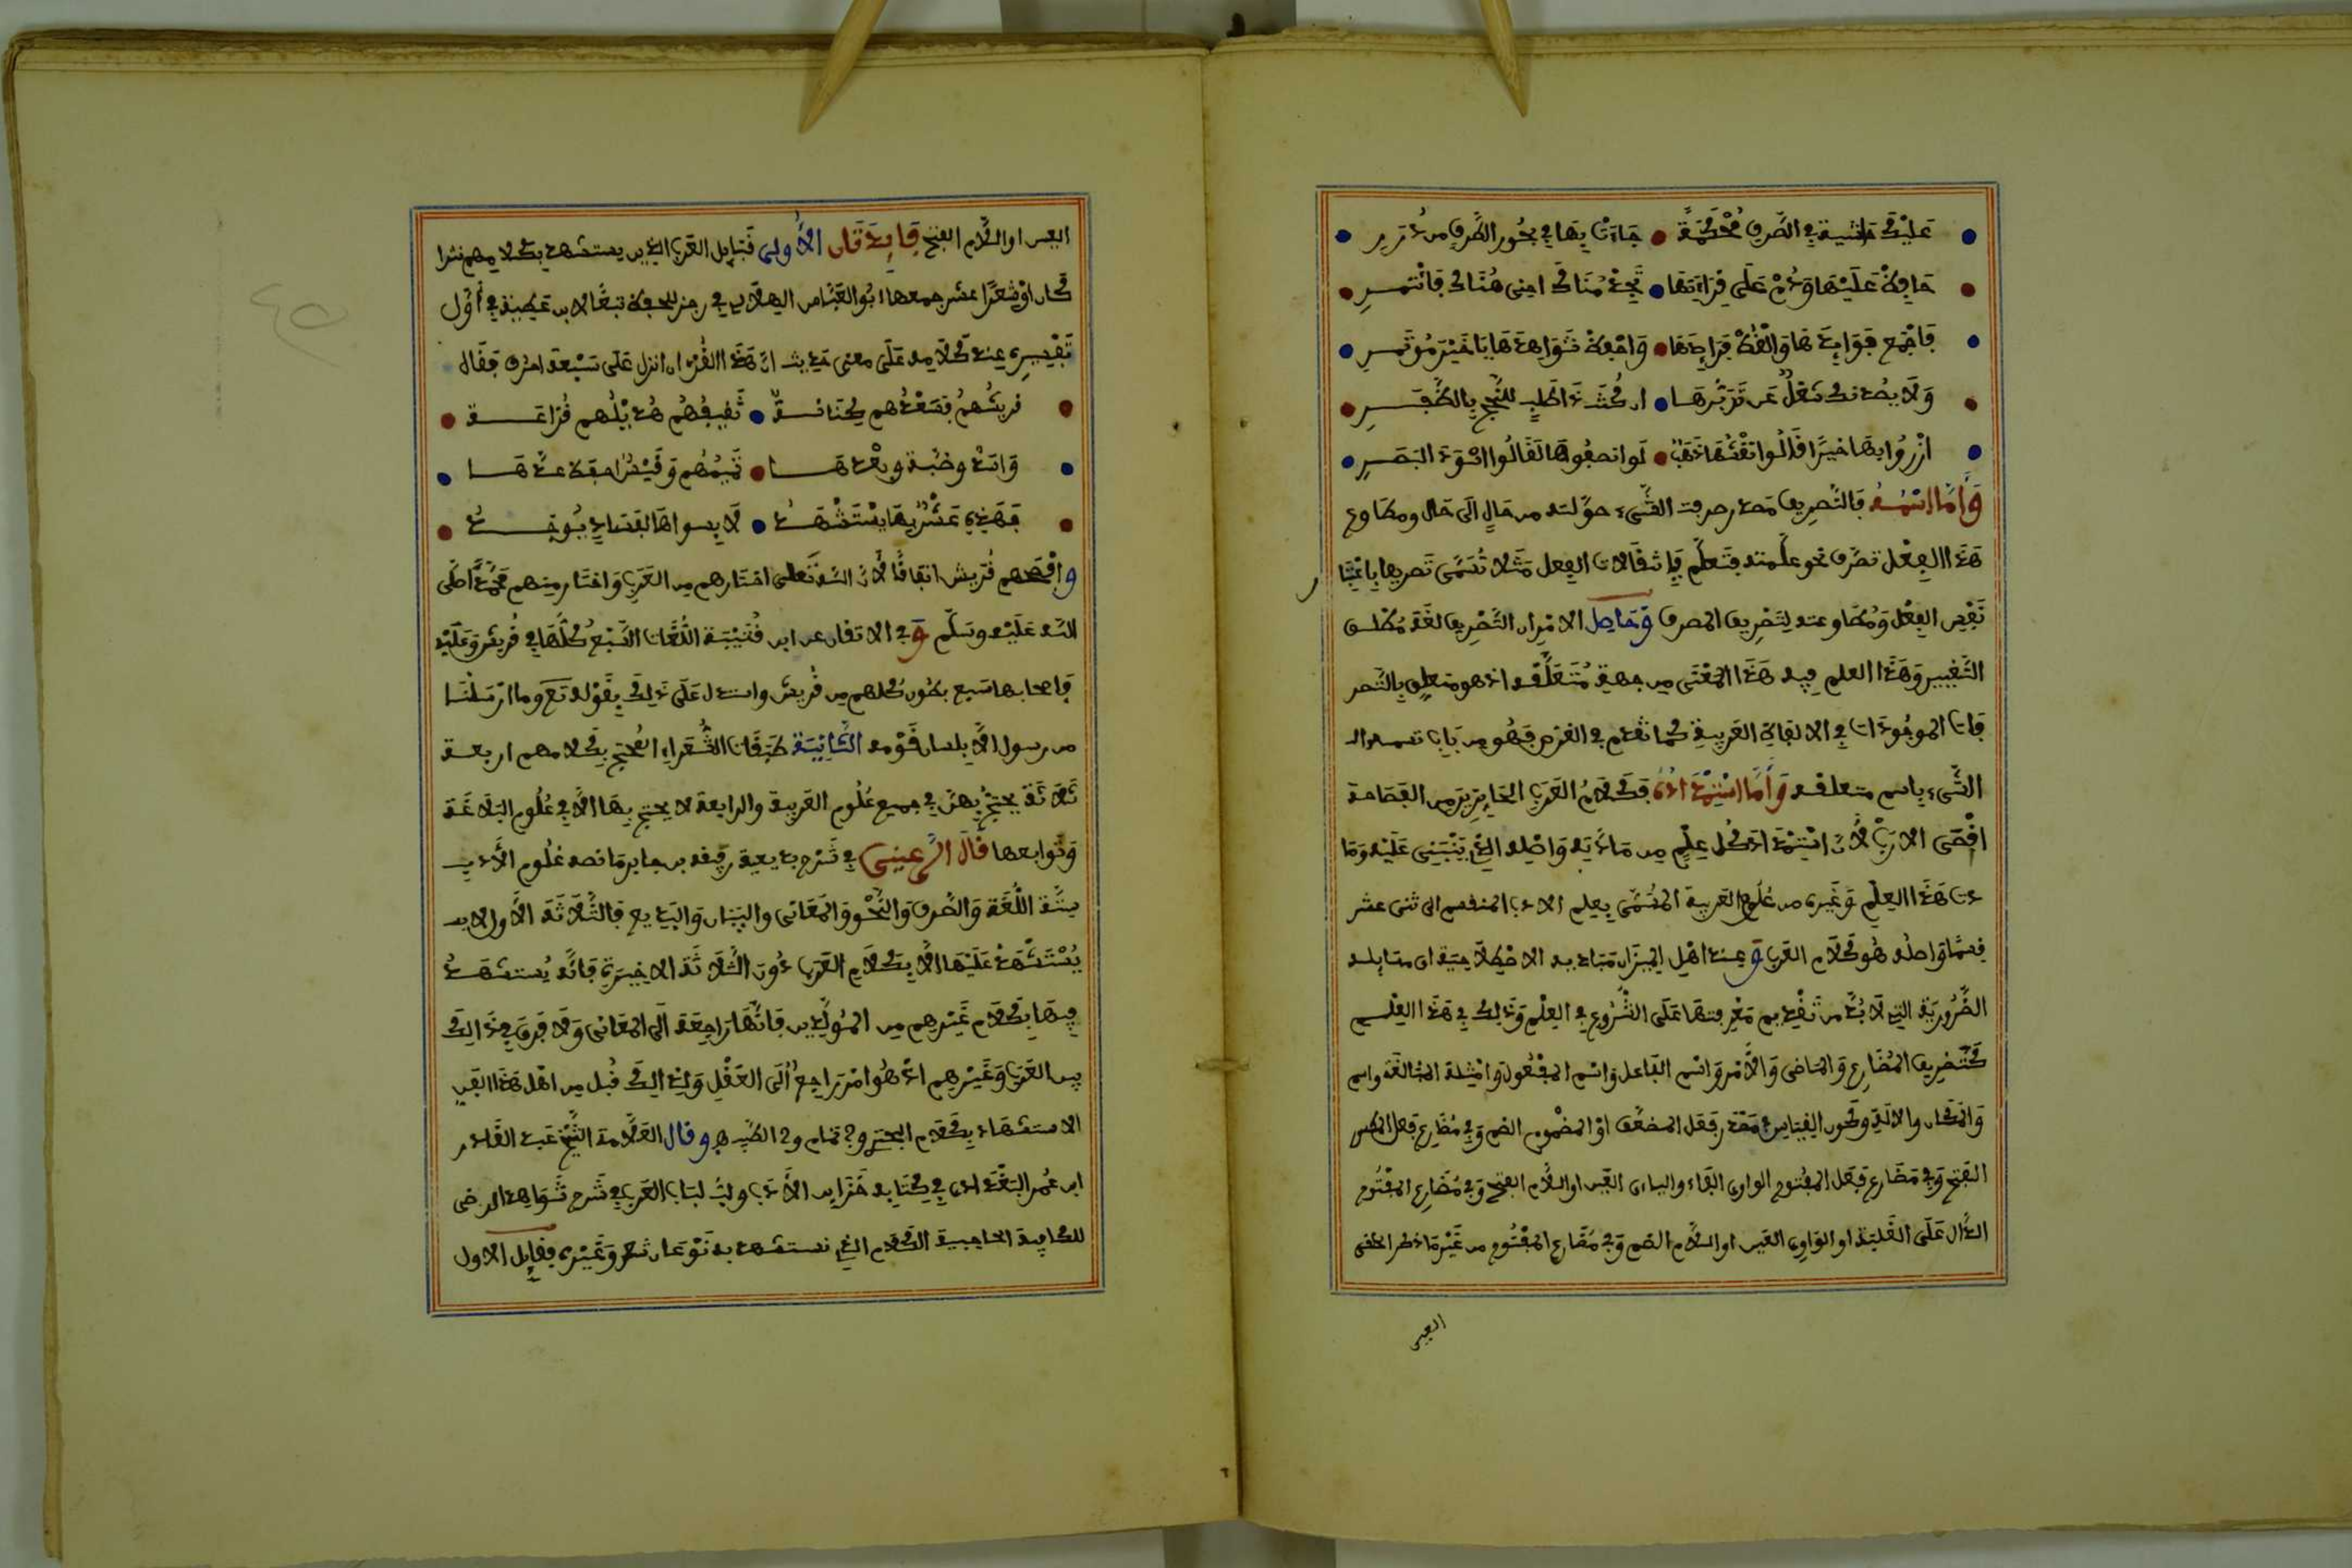 عَلَيْكَ حاشية في الصَّرف مُحْكَمَةً جَاءَت بِهَا في بحُور الظَّرف من دُرر
حَافِظْ عَلَيْهَا وَدُمْ عَلَى قِرَاءَتِهَا تَجِدْ مُنَاكَ اجنى هُنَاكَ فَانْتَمِرِ
فَاجْمَع فَوَائِدَهَا وَالْقُطْ فَرَائِدَهَا وَاحْفِظْ شَوَاهِدَهَا يَا خَيْرَ مُؤتَمِرِ
وَلَا يصُدنك شغلٌ عَن تَدَبُّرِهَا ان كُنتَ ذَا طَلَبٍ للنُّجح بِالظَّفَرِ
ازْرُوا بِهَا خيرًا قَالُوا لَوانصَفُوهَا لَقَالُوا اسْوَدَ البَصَرِ
وَأَمَّا اسْمُهُ فَالتَّصرِيف مَصدر صرفت الشَّيء حوَّلته من حَالٍ الَى حَال ومطَاوع
هَذَا الفِعْل تصَرَّف نحو علَّمته فتَعلَّم فَانتقَالات الفِعل مَثَلًا تُسَمَّى تَصرِيفا بِاعْتِبَار
نَفْسِ الفِعْل وَمُطَاوعته لِتَصْرِيف المصرف وَحَاصِل الامْر ان التَّصْرِيف لغَة مُطْلَق
التَّغيير وَهَذَا العلم فِيه هَذَا المَعْنَى مِن جهة مُتَعَلَّقه اذ هو متعلق بِالتَّصر
فات الموجُودَات في الالفاظ العَرَبِيةِ كما تقدم في الغرض فَهُو مِن بَاب تسمية
الشَّيء باسم متعلقه وَأَمَّا اسْتِمْدَادُهُ فَكَلَامُ العَرَب الحَائِزِيز مِن الفَصَاحَة
اقْصَى الارَبْ لأَن اسْتِمْدَاد كُل عِلْمٍ مِن مَادَّتِهِ وَاصْلِه الذي يَنْبَنِي عَلَيْه وَمَا
دت هَذَا العِلْم وَغَيره من عُلُوم العَرَبية المُسَمَّى بِعِلم الادب المنقسم الى ثنى عشر
قسمًا وَاصله هُو كَلَام العَرَب وَعِند اهْل المِيزَان مَبَادِيه الاصْطِلَاحِيَة اى مسَائِله
الضَّرُورِيَة التِي لَا بُدَّ من تَقْدِيم مَعْرِفتِهَا عَلَى الشُّرُوعِ في العِلْم وَذَلك في هَذَا العِلْم
كَتَصْرِيف المُضَارِع وَالمَاضى وَالأَمْر وَاسْم الفَاعل وَاسْم المَفْعُول وَامْثِلة المُبَالَغَة واسم
وَالمَكَان والآلَة وَكون القِيَاس في مَصْدَر فَعَل المضعَّف اوْ المضْمُوم الضم وَفي مُضَارِع فَعِل المكسور
الفَتح وَفي مَضَارع فَعَل المفْتوح الواوى الفَاء واليَاءى العَين او اللَّام الفتح وَفي مُضَارِع المفْتُوح
الدَّال عَلَى الغَلبَة او الوَاوِى العَين او اللَّام الضم وَفي مُضَارِع المفْتُوح من غَيْر مَا ذكر الحلقى
العين
العين او اللَّام الفتح فَائِدَتَان الأُولى قَبَائِل العَرَب الذين يستشهد بكلامهم نثرا
كان اوْ شعْرًا عشر جمعها ابُو العَبَّاس الهلَالى في رجز للحفظ تبعًا لابن عَطِية في أوَّل
تَفْسِيرِه عند كَلَامِه عَلَى معنى حديث انَّ هَذَا القُرْءان انزل عَلَى سَبْعَة احرف فَقَال
قريشُهُمْ فَسَعْدُهم كِنَانَةٌ ثَقِيفُهُم هُذَيْلُهم خُزَاعَة
وَاسَدٌ وضَبَّة وبعْدهَا تَمِيمُهُم وَقَيْسٌ احفظ عدَّهَا
فَهَذِه عَشْرٌ بِهَا يسْتَشْهَدُ لَا بِسِواهَا
وافْصَحهم قُرَيش اتفَاقًا لأنَّ اللَّه تَعلى اختَارهم مِن العَرَب وَاختَار مِنهم مُحَمَّدًا صَلى
اللَّه عَلَيْه وَسَلّم وَفي الاتقان عن ابن قُتَيْبَة اللُّغَات السَّبْع كُلُّهَا في قُريش وَعَلَيْه
فاصحابها سَبع بطُون كلهم مِن قُريش واستدل عَلَى ذَلِك بِقَوْله تَعَ وَما ارْسَلْنَا
من رسول الَّا بِلسان قَوْمه الثَّانِيَة طَبَقَات الشُّعَرَاء المُحتج بِكَلامهم اربعة
ثَلَاثَة يحْتَج بِهِنَّ في جميع عُلُوم العَرَبِية والرابعة لا يحتج بِهَا الَّا في عُلُوم البَلَاغَة
وَتَوابعها قَالَ الرُّعَيْنِى في شَرْح بديعية رَفِيقه بن جابر مَا نصه عُلُوم الأَدَبِ
سِتَّة اللُّغَة وَالصَّرف وَالنَّحْو وَالمَعَانى والبَيَان وَالبَدِيع فَالثَّلَاثَة الأُوَل لَا
يُسْتَشْهَدْ عَلَيْهَا الَّا بِكَلَام العَرَب دُون الثَّلَاثَة الاخِيرَة فَانَّه يُستشهَدُ
فِيهَا بِكَلَام غَيْرِهِم مِن المُوَلَّدِين فَانَّهَا رَاجِعَة الَى المَعَانى وَلَا فَرقَ في ذَلِكَ
بين العَرَب وَغَيْرِهِم اذْ هُو امْر رَاجعٌ الَى العَقْلِ وَلِذَلِكَ قُبل مِن اهْل هَذَا الفَن
الاستشهَاد بِكَلَام البحتري وَ تمام و الطَّيِّب وقال العَلَّامَة الشَّيْخ عَبد القَادر
ابن عُمر البَغْدَادى في كِتَابه خِزَانة الأَدَب ولُبّ لبَاب العَرَب في شَرح شَوَاهد الرضى
للكافِية الحاجبية الكَلَام الذي نستشهد به نَوْعَان شعر وَغَيْره فقَائِل الاول